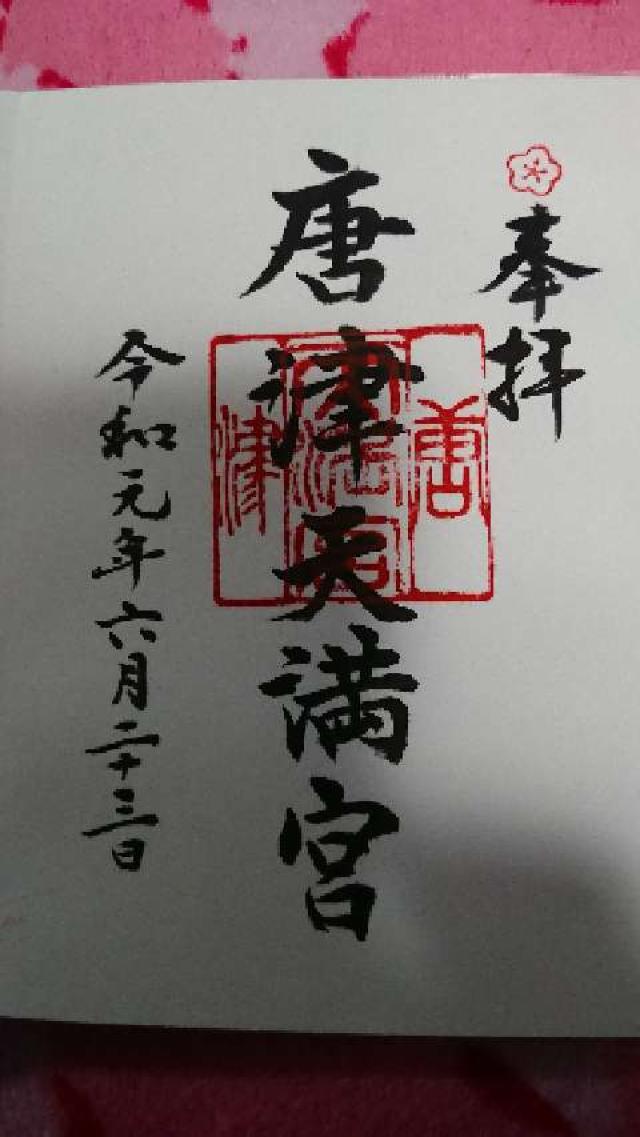 奉拝
唐津天満宮
令和元年六月二十三日
唐
津